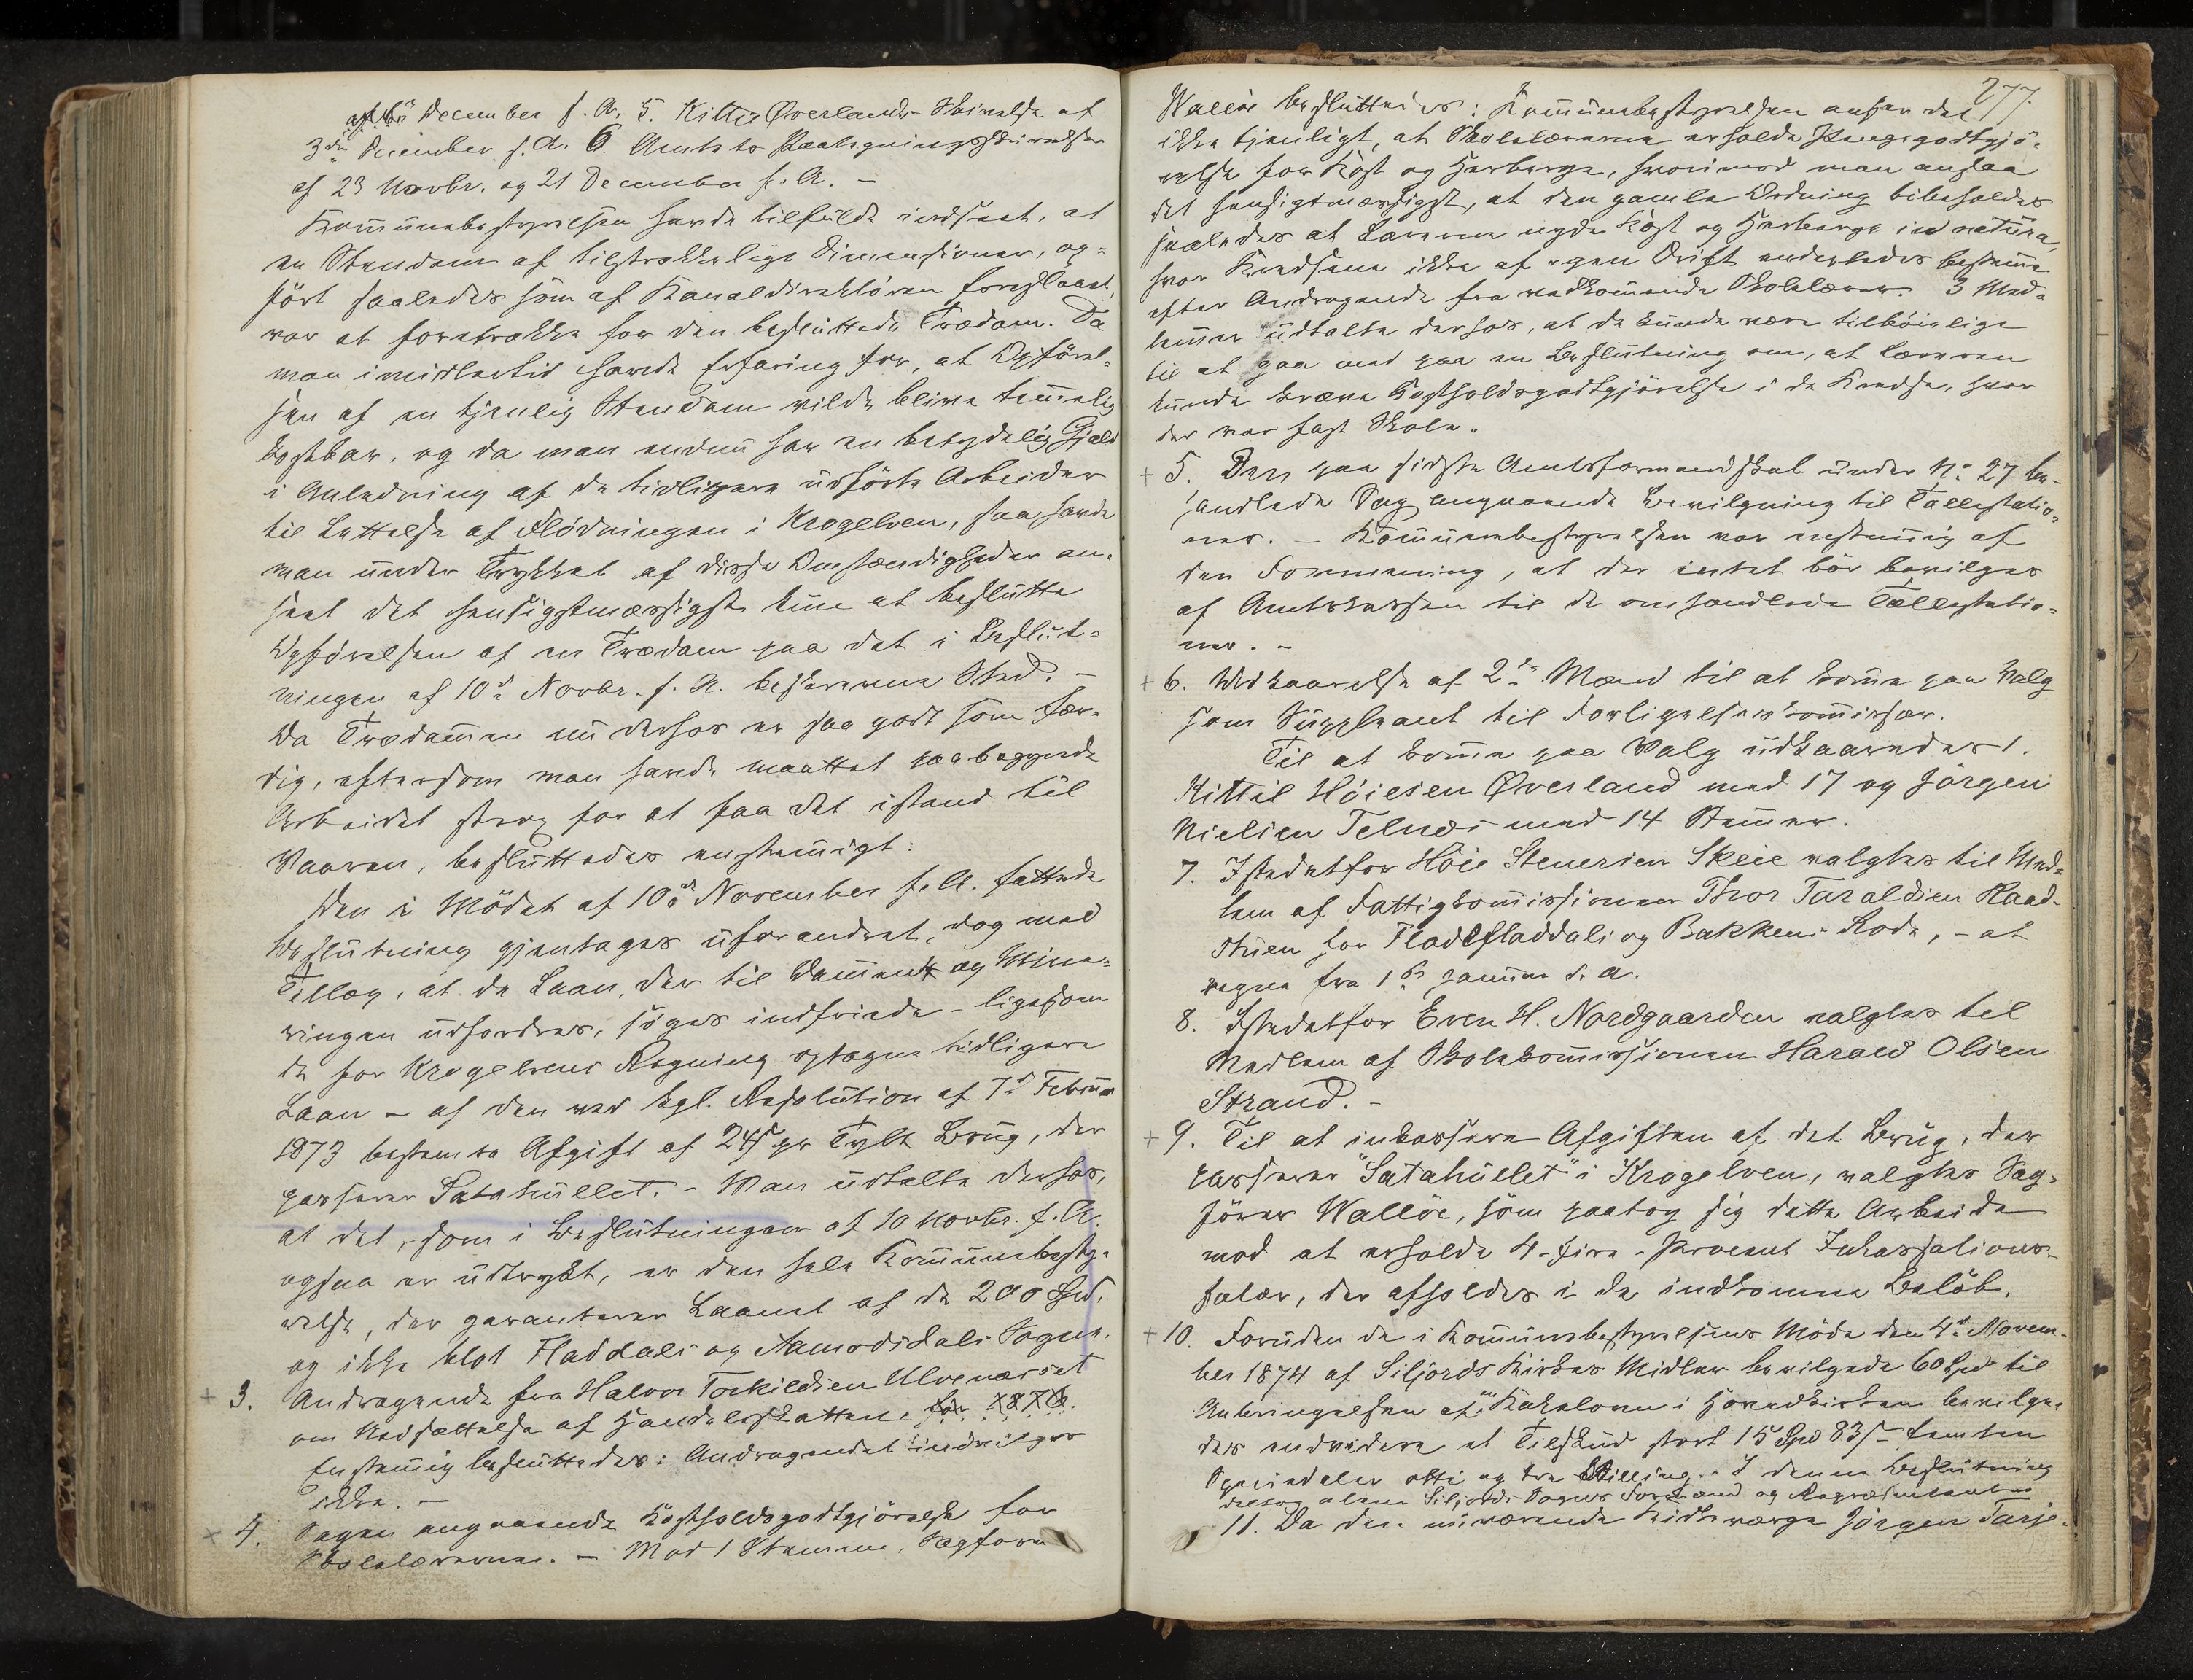 af 6te December f. A. 5. Kittil Øverlands Skrivelse af
3die December f. A. 6. Amtets Paategningsskrivelser
af 23 Novbr. og 21 December f. A. —
Kommunebestyrelsen havde tilfulde indseet, at
en Stendam af tilstrækkelige Dimensioner, op-
ført saaledes som af Kanaldirektøren foreslaaet,
var at foretrække for den besluttede Trædam. Da
man imidlertid havde Erfaring for, at Opførel-
sen af en tjenlig Stendam vilde blive temmelig
kostbar, og da man endnu har en betydelig Gjæld
i Anledning af de tidligere udførte Arbeider
til Lettelse af Flødningen i Krogelven, saa havde
man under Trykket af disse Omstændigheder an-
seet det hensigtsmæssigste kun at beslutte
Opførelsen af en Trædam paa det i Beslut-
ningen af 10de Novbr. f. A. beskrevne Sted. —
Da Trædammen nu derhos er saa godt som fær-
dig, eftersom man havde maattet paabegynde
Arbeidet strax for at faa det istand til
Vaaren, besluttedes enstemmigt:
Den i Mødet af 10de November f. A. fattede
Beslutning gjentages uforandret, dog med
Tillæg, at de Laan, der til Dammen og Mine-
ringen udfordres, søges indfriede – ligesom
de for Krogelvens Regning optagne tidligere
Laan – af den ved kgl. Resolution af 7de Februar
1873 bestemte Afgift af 24 s pr Tylt Brug, der
passerer Satahullet. – Man udtalte derhos,
at det, som i Beslutningen af 10 Novbr. f. A.
ogsaa er udtrykt, er den hele Kommunebesty-
relse, der garanterer Laanet af de 200 Spd.
og ikke blot Fladdals og Aamodsdals Sogne.
+ 3. Andragende fra Halvor Torkildsen Ulvenæsset
om Nedsættelse af Handelsskatten for 1876.
Enstemmig besluttedes: Andragendet indvilges
ikke. —
× 4. Sagen angaaende Kostholdsgodtgjørelse for
Skolelærerne. — Mod 1 Stemme, Sagfører
277.
Walløe besluttedes: Kommunebestyrelsen anser det
ikke tjenligt, at Skolelærerne erholde Pengegodtgjø-
relse for Kost og Herberge, hvorimod man ansaa
det hensigtmæssigst, at den gamle Ordning bibeholdes
saaledes at Læreren nyder Kost og Herberge in natura,
hvor Kredsene ikke af egen Drift anderledes bestemme
efter Andragende fra vedkommende Skolelærer. 3 Med-
lemmer udtalte derhos, at de kunde være tilbøielige
til at gaa med paa en Beslutning om, at Læreren
kunde kræve Kostholdsgodtgjørelse i de Kredse, hvor
der var fast Skole.
+ 5. Den paa sidste Amtsformandskab under No 27 be-
handlede Sag angaaende Bevilgning til Tællestatio-
ner. — Kommunebestyrelsen var enstemmig af
den Formening, at der intet bør bevilges
af Amtskassen til de omhandlede Tællestatio-
ner. –
+ 6. Udkaarelse af 2de Mænd til at komme paa Valg
som Suppleant til Forligelseskommissær.
Til at komme paa Valg udkaaredes 1.
Kittil Høiesen Øverland med 17 og Jørgen
Nielsen Telnes med 14 Stemmer.
7. Istedetfor Høie Stenersen Skeie valgtes til Med-
lem af Fattigkommissionen Thor Taraldsen Raad-
stuen for Fladdals og Bakkens Rode, – at
regne fra 1ste Januar d. A.
8. Istedetfor Even H. Nordgaarden valgtes til
Medlem af Skolekommissionen Harald Olsen
Strand. –
+ 9. Til at inkassere Afgiften af det Brug, der
passerer "Satahullet" i Krogelven, valgtes Sag-
fører Walløe, som paatog sig dette Arbeide
mod at erholde 4 – fire – Procent Inkassations-
salær, der afholdes i de indkomne Beløb.
+ 10. Foruden de i Kommunebestyrelsens Møde den 4de Novem-
ber 1874 af Siljords Kirkes Midler bevilgede 60 Spd til
Anbringelsen af Kakelovn i Hovedkirken bevilge-
des endvidere et Tilskud stort 15 Spd 83 s – femten
Speciedaler otti og tre Skilling. – I denne Beslutning
deltog alene Siljords Sogns Formænd og Repræsentanter
11. Da den nuværende Kirkeværge Jørgen Tarje-